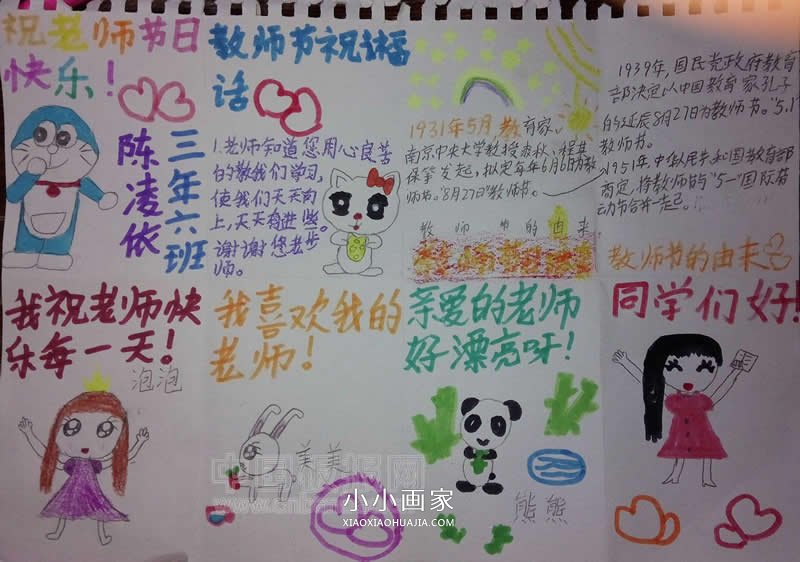 祝老师节日
快乐!
三年六班
陈凌依
教师节祝福
话
1.老师知道您用心良苦
的教我们学习,
使我们天天向
上,天天
谢谢您老
师。
1931年5月,教育家
南京中央大学教授
等发起,拟定每年6月6日为教
师节。"8月27日"教师节。
教师节的由来
1939年,国民党政府教育
部决定以中国教育家孔子
的诞辰8月27日为教师节。"5.1"
教师节。
1951年,中华人民共和国教育部
商定,将教师节与"5一"国际劳
动节合并一起。
教师节的由来
我祝老师快
乐每一天!
泡泡
我喜欢我的
老师!
美美
亲爱的老师
好漂亮呀!
熊熊
同学们好!
小小画家
XIAOXIAOHUAJIA.COM